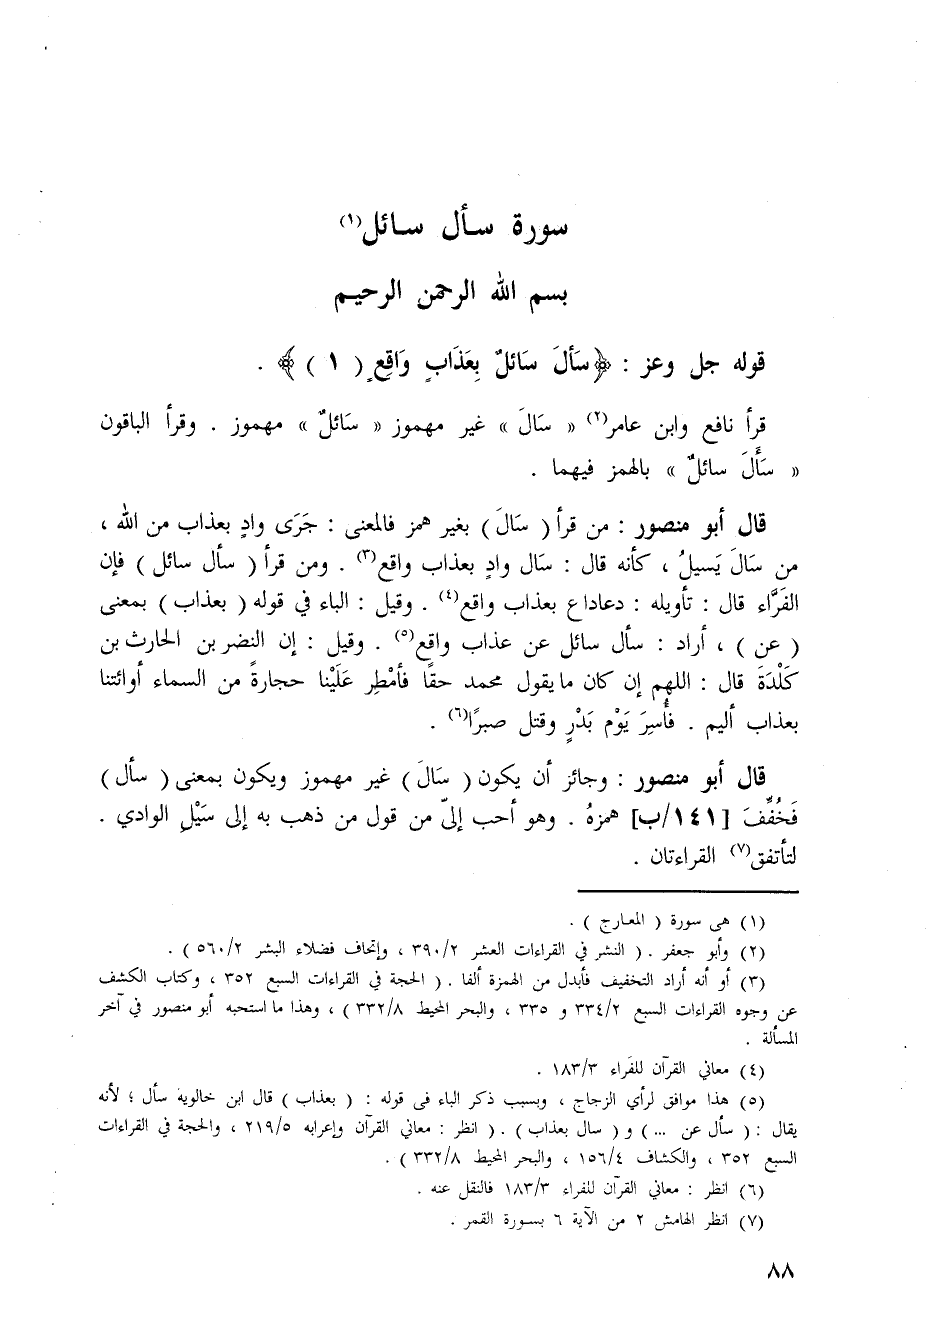 سورة سأل سائل(١)
بسم الله الرحمن الرحيم
قوله جل وعز : ﴿سَأَلَ سَائلٌ بِعَذَابٍ وَاقِعٍ ( ١ ) ﴾ .
قرأ نافع وابن عامر(٢) « سَالَ » غير مهموز « سَائلٌ » مهموز . وقرأ الباقون
« سَأَلَ سائلٌ » بالهمز فيهما .
قال أبو منصور : من قرأ ( سَالَ ) بغير همز فالمعنى : جَرَى وادٍ بعذاب من الله ،
من سَالَ يَسيلُ ، كأنه قال : سَال وادٍ بعذاب واقع(٣) . ومن قرأ ( سأل سائل ) فإن
الفَرَّاء قال : تأويله : دعاداع بعذاب واقع(٤) . وقيل : الباء في قوله ( بعذاب ) بمعنى
( عن ) ، أراد : سأل سائل عن عذاب واقع(٥) . وقيل : إن النضر بن الحارث بن
كَلْدَةَ قال : اللهم إن كان ما يقول محمد حقًا فأَمْطِر عَلَيْنا حجارةً من السماء أوائتنا
بعذاب أليم . فأُسِرَ يَوْم بَدْرٍ وقتل صبرًا(٦) .
قال أبو منصور : وجائز أن يكون ( سَالَ ) غير مهموز ويكون بمعنى ( سأل )
فَخُفِّفَ [١٤١/ب] همزهُ . وهو أحب إليّ من قول من ذهب به إلى سَيْلِ الوادي .
لتأتفق(٧) القراءتان .
(١) هى سورة ( المعارج ) .
(٢) وأبو جعفر . ( النشر في القراءات العشر ٣٩٠/٢ ، وإتحاف فضلاء البشر ٥٦٠/٢ ) .
(٣) أو أنه أراد التخفيف فأبدل من الهمزة ألفا . ( الحجة في القراءات السبع ٣٥٢ ، وكتاب الكشف
عن وجوه القراءات السبع ٣٣٤/٢ و ٣٣٥ ، والبحر المحيط ٣٣٢/٨ ) ، وهذا ما استحبه أبو منصور في آخر
المسألة .
(٤) معاني القرآن للفراء ١٨٣/٣ .
(٥) هذا موافق لرأي الزجاج ، وبسبب ذكر الباء فى قوله : ( بعذاب ) قال ابن خالوية سأل ؛ لأنه
يقال : ( سأل عن ... ) و ( سال بعذاب ) . ( انظر : معاني القرآن وإعرابه ٢١٩/٥ ، والحجة في القراءات
السبع ٣٥٢ ، والكشاف ١٥٦/٤ ، والبحر المحيط ٣٣٢/٨ ) .
(٦) انظر : معاني القرآن للفراء ١٨٣/٣ فالنقل عنه .
(٧) انظر الهامش ٢ من الآية ٦ بسورة القمر .
٨٨